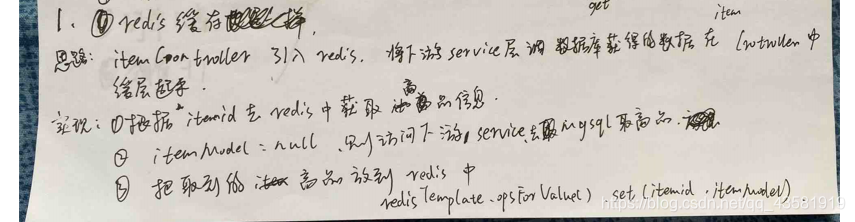 1. ① redis 缓存
get item
思路: itemController 引入 redis, 将下游service层调数据库获得的数据在 Controller 中
缓存起来.
实现: ① 根据 itemid 去 redis 中获取 商品信息.
② itemModel = null 则访问下游 service 去 mysql 取商品.
③ 把取到的 商品放到 redis 中
redisTemplate.opsForValue() set(itemid, itemModel)
https://blog.csdn.net/qq_43581919